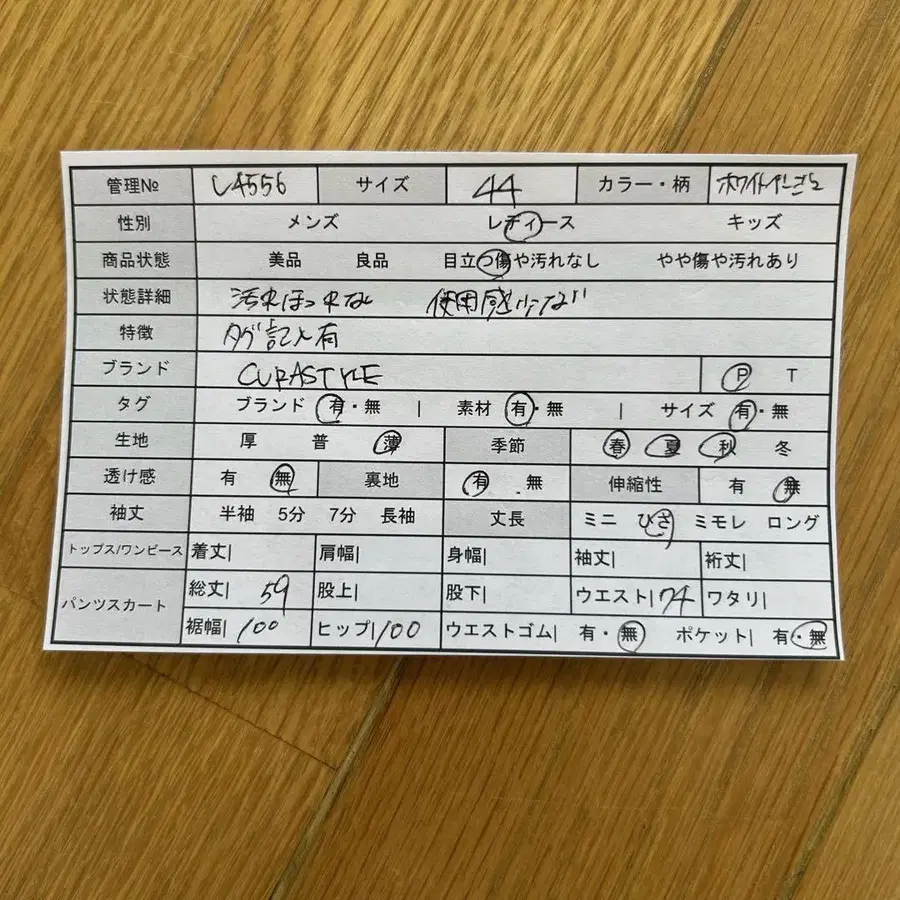 管理№ L4556 サイズ 44 カラー・柄 ホワイトベージュ
性別 メンズ レディース キッズ
商品状態 美品 良品 目立つ傷や汚れなし やや傷や汚れあり
状態詳細 汚れほつれなし 使用感少なめ
特徴 タグ記入有
ブランド CURASTYLE P T
タグ ブランド 有・無 | 素材 有・無 | サイズ 有・無
生地 厚 普 薄 季節 春 夏 秋 冬
透け感 有 無 裏地 有 . 無 伸縮性 有 無
袖丈 半袖 5分 7分 長袖 丈長 ミニ ひざ ミモレ ロング
トップス/ワンピース 着丈| 肩幅| 身幅| 袖丈| 裄丈|
パンツスカート 総丈| 59 股上| 股下| ウエスト| 74 ワタリ|
裾幅| 100 ヒップ| 100 ウエストゴム| 有・無 ポケット| 有・無